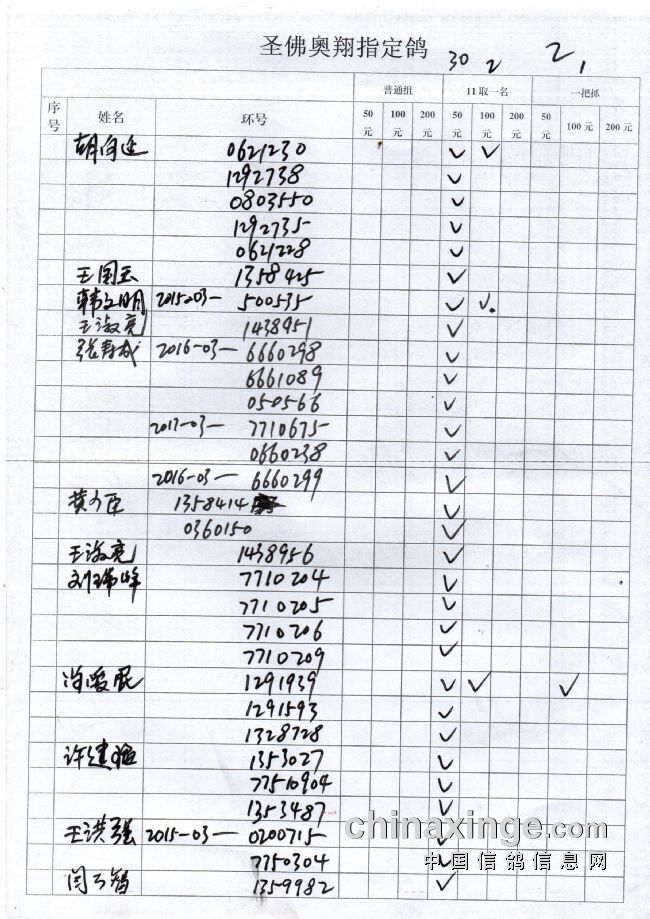 圣佛奥翔指定鸽
30 2 2 1
普通组 11取一名 一把抓
序号 姓名 环号 50元 100元 200元 50元 100元 200元 50元 100元 200元
0621230 ✓ ✓
1292738 ✓
0803550 ✓
1292735 ✓
0621228 ✓
王国玉 1358425 ✓
韩文明 2015-03— 500535 ✓ ✓
王海亮 1438951 ✓
张春成 2016-03— 6660298 ✓
6661089 ✓
050566 ✓
2017-03— 7710675 ✓
0660238 ✓
2016-03— 6660299 ✓
1358414 ✓
0360150 ✓
王海亮 1438956 ✓
刘瑞峰 7710204 ✓
7710205 ✓
7710206 ✓
7710209 ✓
1291939 ✓ ✓ ✓
1291593 ✓
1328728 ✓
许建 1353027 ✓
77510904 ✓
1353487 ✓
王洪强 2015-03— 0200715 ✓
7750304
闫万智 1359982 ✓
chinaxinge.com
中国信鸽信息网